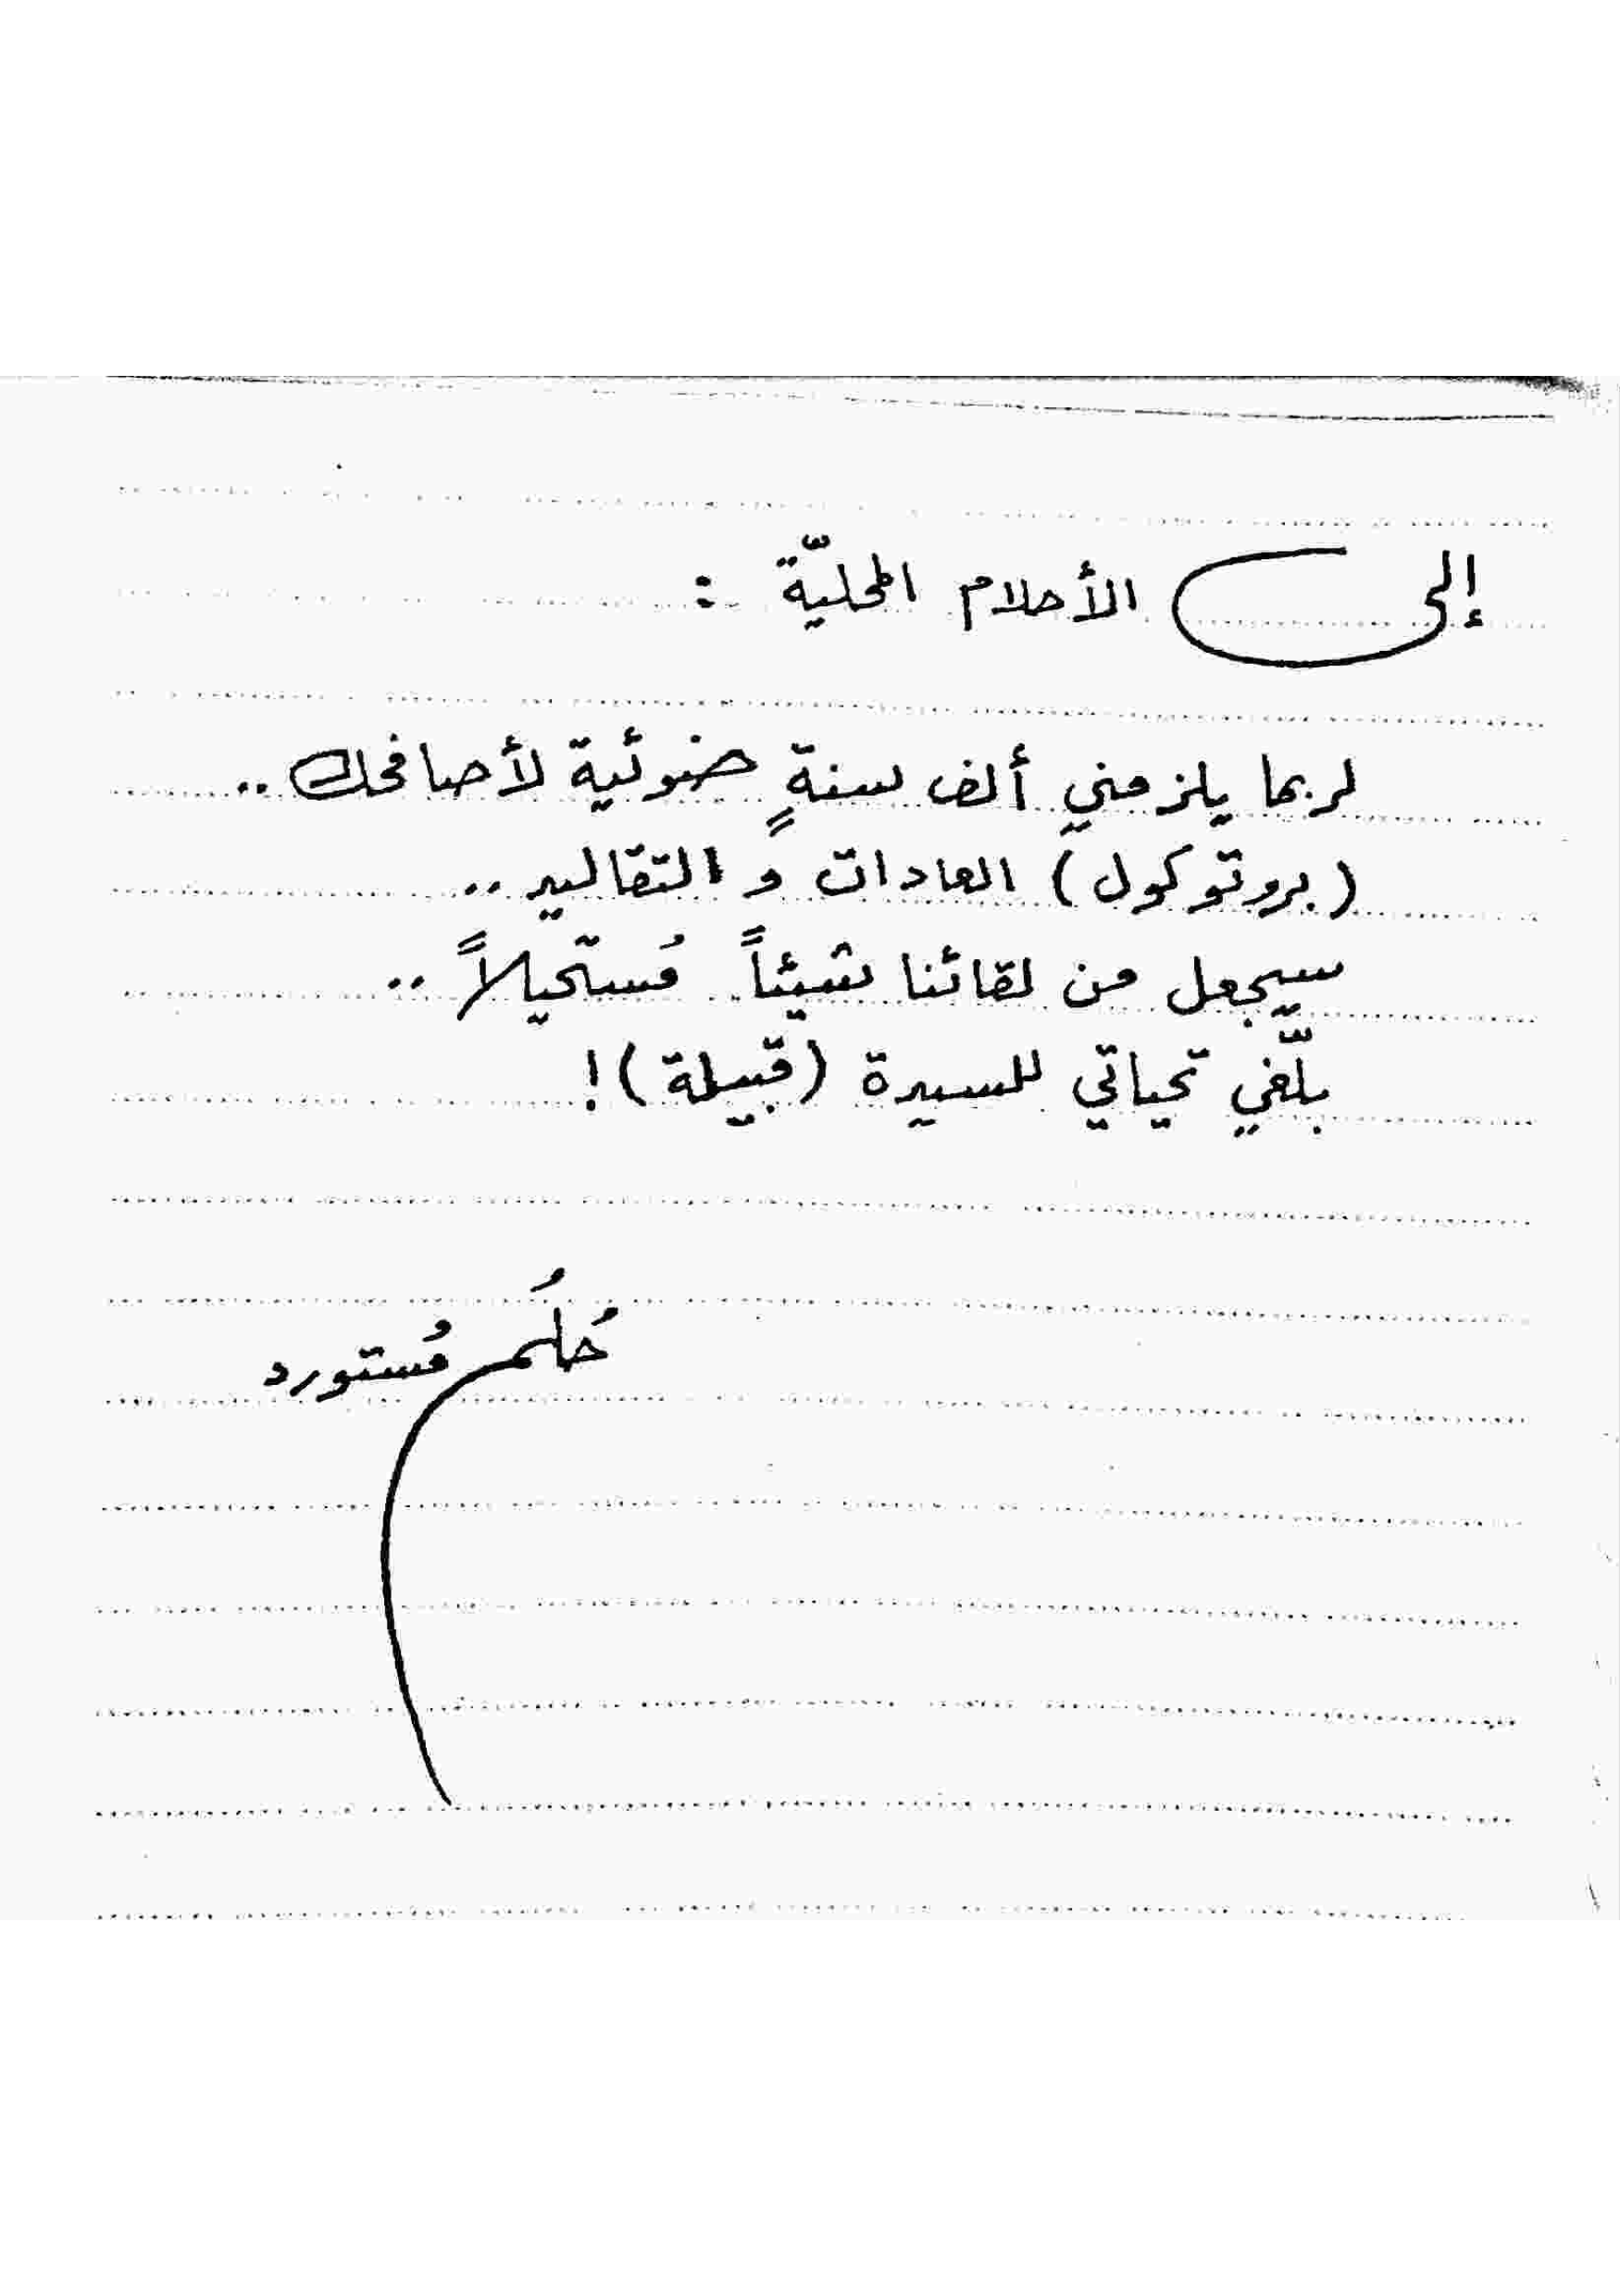 إلى الأحلام المحليّة :
لربما يلزمني ألف سنةٍ ضوئية لأصافحك ..
(بروتوكول) العادات و التقاليد ..
سيجعل من لقائنا شيئاً مُستحيلاً ..
بلّغي تحياتي للسيدة (قبيلة)!
حُلُم مُستورد